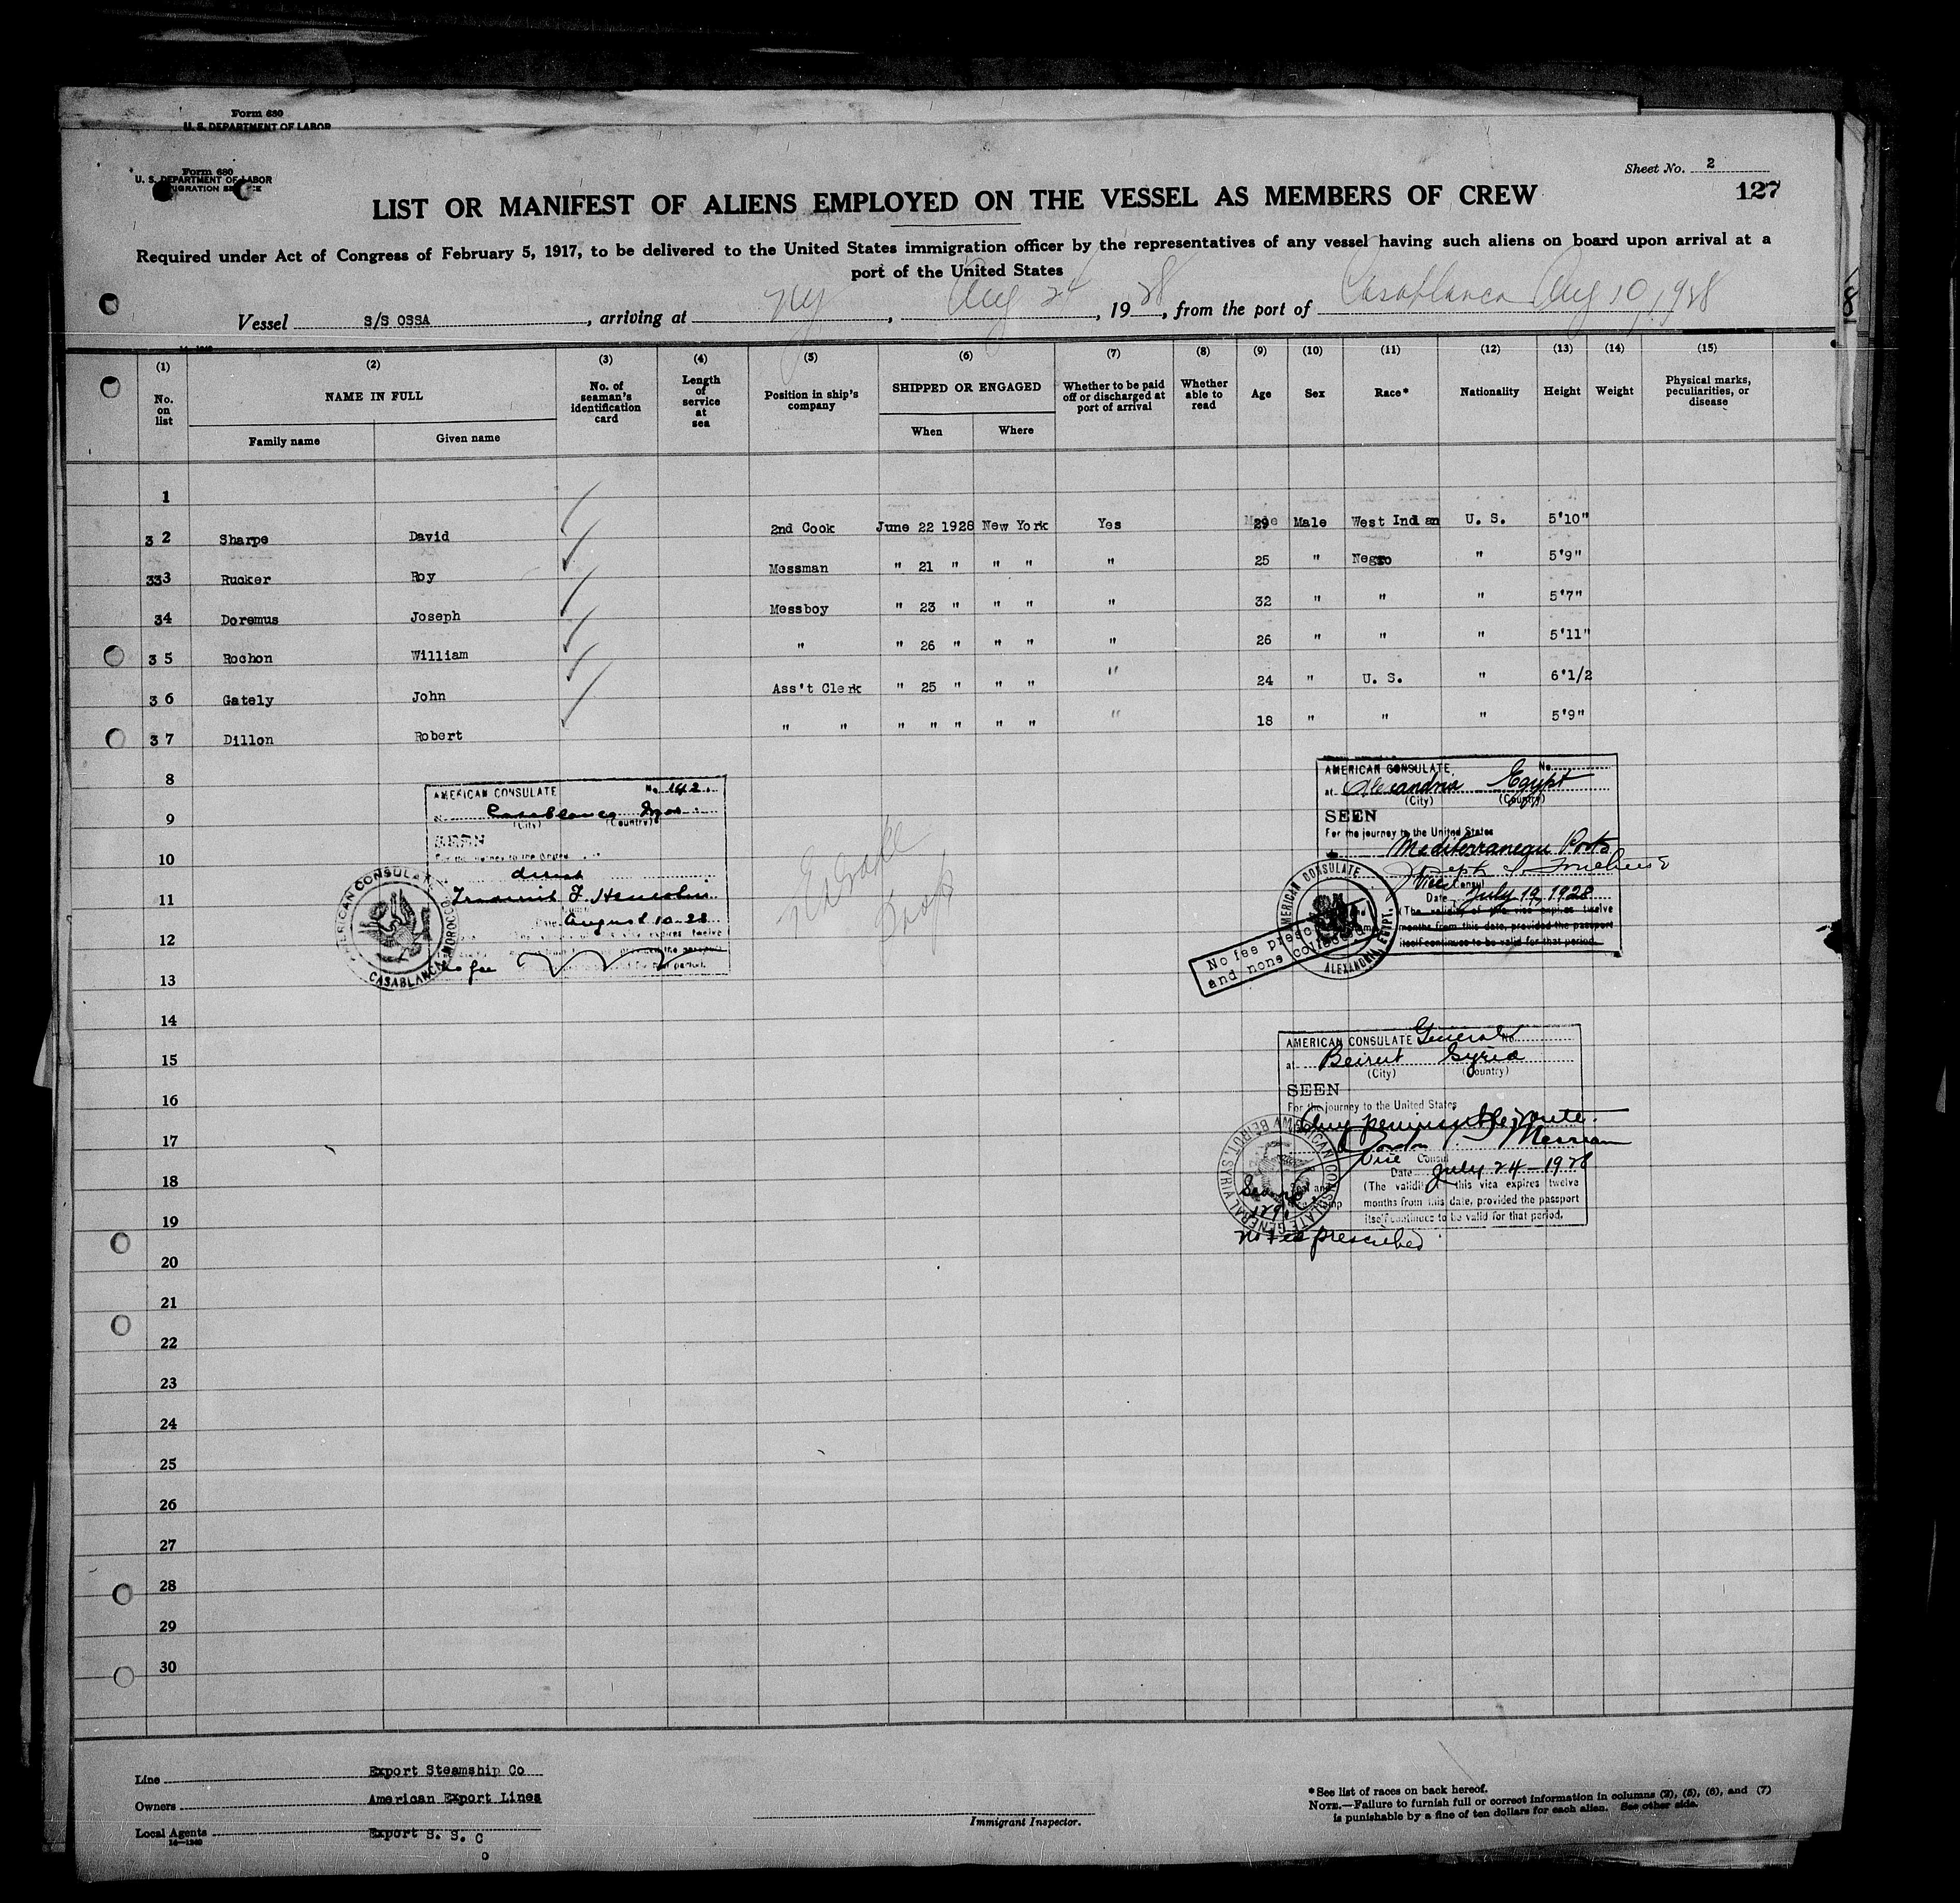 Form 680
U. S. DEPARTMENT OF LABOR
Form 680
U. S. DEPARTMENT OF LABOR
Sheet No. 2
127
LIST OR MANIFEST OF ALIENS EMPLOYED ON THE VESSEL AS MEMBERS OF CREW
Required under Act of Congress of February 5, 1917, to be delivered to the United States immigration officer by the representatives of any vessel having such aliens on board upon arrival at a
port of the United States
Vessel S/S OSSA, arriving at NY, Aug 24, 1928, from the port of Casablanca Aug 10, 1928
(1) (2) (3) (4) (5) (6) (7) (8) (9) (10) (11) (12) (13) (14) (15)
No. on list NAME IN FULL Family name Given name No. of seaman's identification card Length of service at sea Position in ship's company SHIPPED OR ENGAGED When Where Whether to be paid off or discharged at port of arrival Whether able to read Age Sex Race* Nationality Height Weight Physical marks, peculiarities, or disease
1
3 2 Sharpe David 2nd Cook June 22 1928 New York Yes 29 Male West Indian U. S. 5'10"
333 Rucker Roy Messman " 21 " " " " 25 " Negro " 5'9"
34 Doremus Joseph Messboy " 23 " " " " 32 " " " 5'7"
3 5 Rochon William " " 26 " " " " 26 " " " 5'11"
3 6 Gately John Ass't Clerk " 25 " " " " 24 " U. S. " 6'1/2
3 7 Dillon Robert " " " " " " " " 18 " " " 5'9"
8
9
10
11
12
13
14
15
16
17
18
19
20
21
22
23
24
25
26
27
28
29
30
AMERICAN CONSULATE No. 142.
at Casablanca Mor.
(City) (Country)
SEEN
For the journey to the United
direct
August 10-28
no fee
AMERICAN CONSULATE
CASABLANCA MOROCCO
AMERICAN CONSULATE, No.
at Alexandria Egypt
(City) (Country)
SEEN
For the journey to the United States
Mediterranean Ports
Vice Consul
Date July 19, 1928
(The validity of this vica expires twelve
months from this date, provided the passport
itself continues to be valid for that period.
AMERICAN CONSULATE
ALEXANDRIA, EGYPT.
No fee prescribed
and none collected
AMERICAN CONSULATE General No.
at Beirut Syria
(City) (Country)
SEEN
For the journey to the United States
Any permissible route.
Merriam
Vice Consul
Date July 24-1928
(The validity of this vica expires twelve
months from this date, provided the passport
itself continues to be valid for that period.
AMERICAN CONSULATE GENERAL
BEIRUT, SYRIA
No fee prescribed
Line Export Steamship Co
Owners American Export Lines
Local Agents Export S. S. Co
Immigrant Inspector.
*See list of races on back hereof.
NOTE.—Failure to furnish full or correct information in columns (2), (5), (6), and (7)
is punishable by a fine of ten dollars for each alien. See other side.